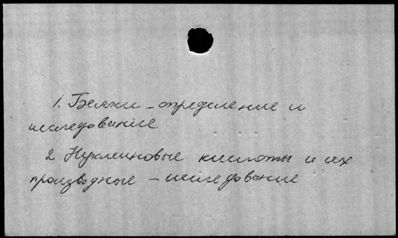 1. Белки – определение и
исследование
2 Нуклеиновые кислоты и их
производные – исследование